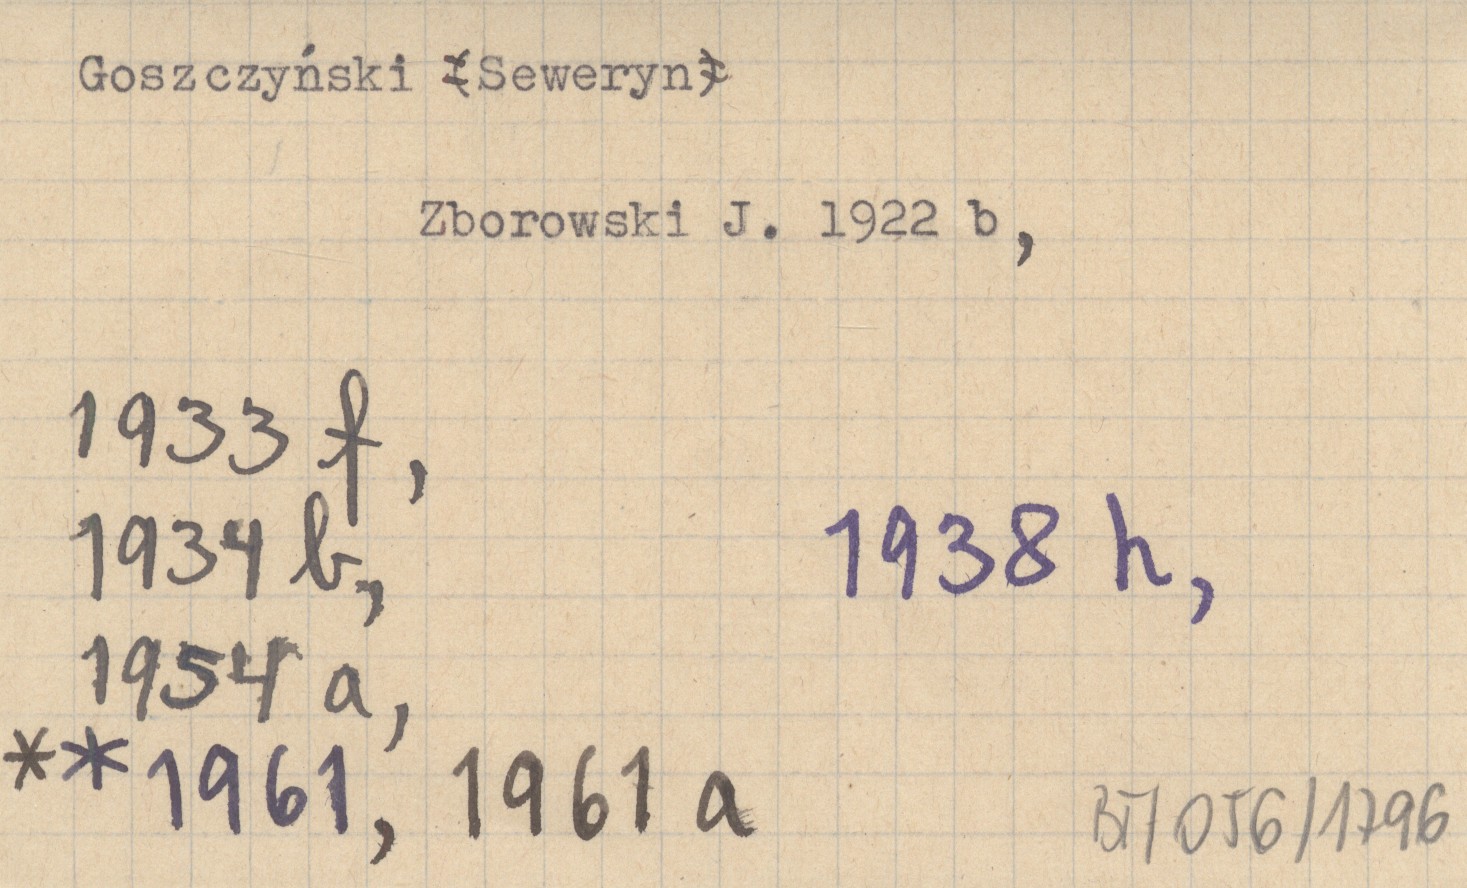 Goszczyński (Seweryn)
Zborowski J. 1922 b,
1933 f,
1934 b,
1938 h,
1954 a,
**1961, 1961 a
BT/056/1796